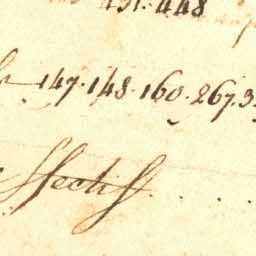 431. 448
147. 148. 160. 267. 3
ffectif . . . .